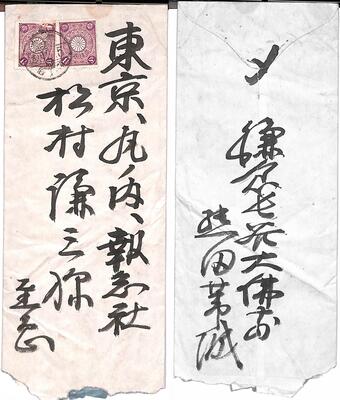 東京、丸ノ内、報知社
松村謙三様
至急
鎌倉長谷大佛前